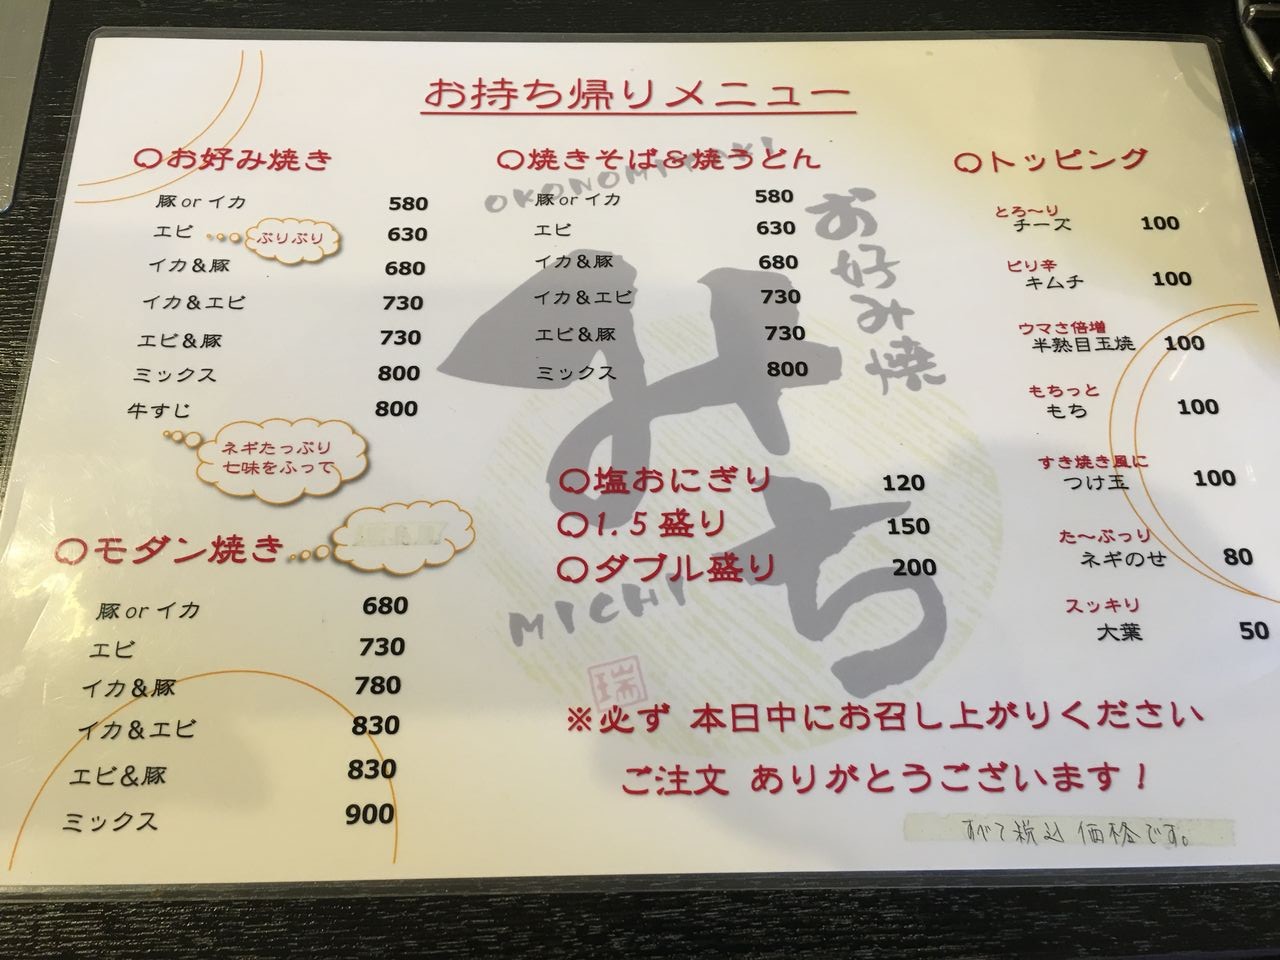 お持ち帰りメニュー
○お好み焼き
豚 or イカ 580
エビ ぷりぷり 630
イカ&豚 680
イカ&エビ 730
エビ&豚 730
ミックス 800
牛すじ 800
ネギたっぷり
七味をふって
○モダン焼き
豚 or イカ 680
エビ 730
イカ&豚 780
イカ&エビ 830
エビ&豚 830
ミックス 900
○焼きそば&焼うどん
豚 or イカ 580
エビ 630
イカ&豚 680
イカ&エビ 730
エビ&豚 730
ミックス 800
○塩おにぎり 120
○1.5盛り 150
○ダブル盛り 200
○トッピング
とろ～り
チーズ 100
ピリ辛
キムチ 100
ウマさ倍増
半熟目玉焼 100
もちっと
もち 100
すき焼き風に
つけ玉 100
た～ぷっり
ネギのせ 80
スッキリ
大葉 50
OKONOMIYAKI
お好み焼
みち
MICHI
瑞
※必ず 本日中にお召し上がりください
ご注文 ありがとうございます!
すべて税込価格です。